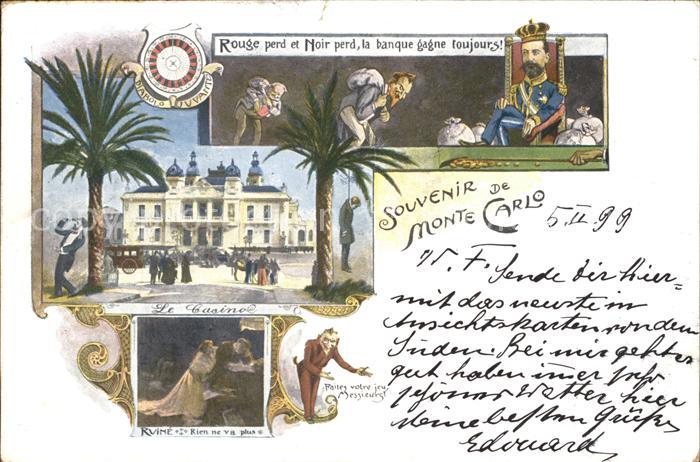 Rouge perd et Noir perd, la banque gagne toujours!
Souvenir de
Monte Carlo
5 II 99
Le Casino
Faites votre jeu
Messieurs!
Ruiné Rien ne va plus
Sende dir hier=
mit das neueste in
Ansichtskarten von dem
Süden. Bei mir geht es
gut haben imer sehr
schönes Wetter hier
deine besten Grüße
Edouard